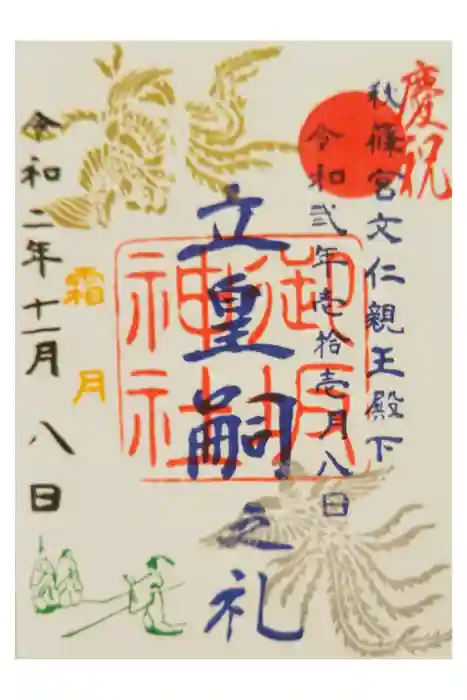 慶祝
秋篠宮文仁親王殿下
令和弐年壱拾壱月八日
立皇嗣之礼
御坂
神社
霜月
令和二年十一月八日